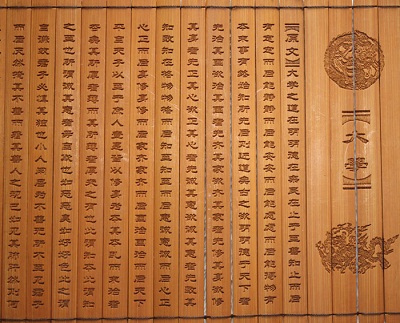 【大學】
【原文】大学之道在明明德在亲民在止于至善知止而后
有定定而后能静静而后能安安而后能虑虑而后能得物有
本末事有终始知所先后则近道矣古之欲明明德于天下者
先治其国欲治其国者先齐其家欲齐其家者先修其身欲修
其身者先正其心欲正其心者先诚其意欲诚其意者先致其
知致知在格物物格而后知至知至而后意诚意诚而后
心正心正而后身修身修而后家齐家齐而后国治国治而后天下
平自天子以至于庶人壹是皆以修身为本其本乱而末治者
否矣其所厚者薄而其所薄者厚未之有也此谓知本此谓知
之至也所谓诚其意者毋自欺也如恶恶臭如好好色此之谓
自谦故君子必慎其独也小人闲居为不善无所不至见君子
而后厌然掩其不善而著其善人之视己如见其肺肝然则何